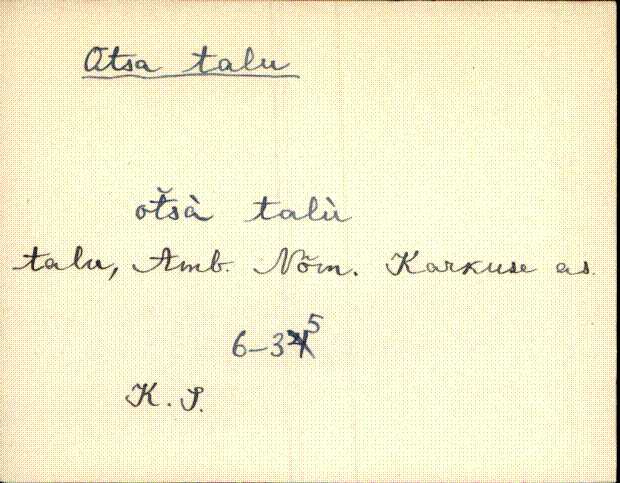 Otsa talu
oťsà talù
talu, Amb. Nõm. Karkuse as.
6-35
K. S.